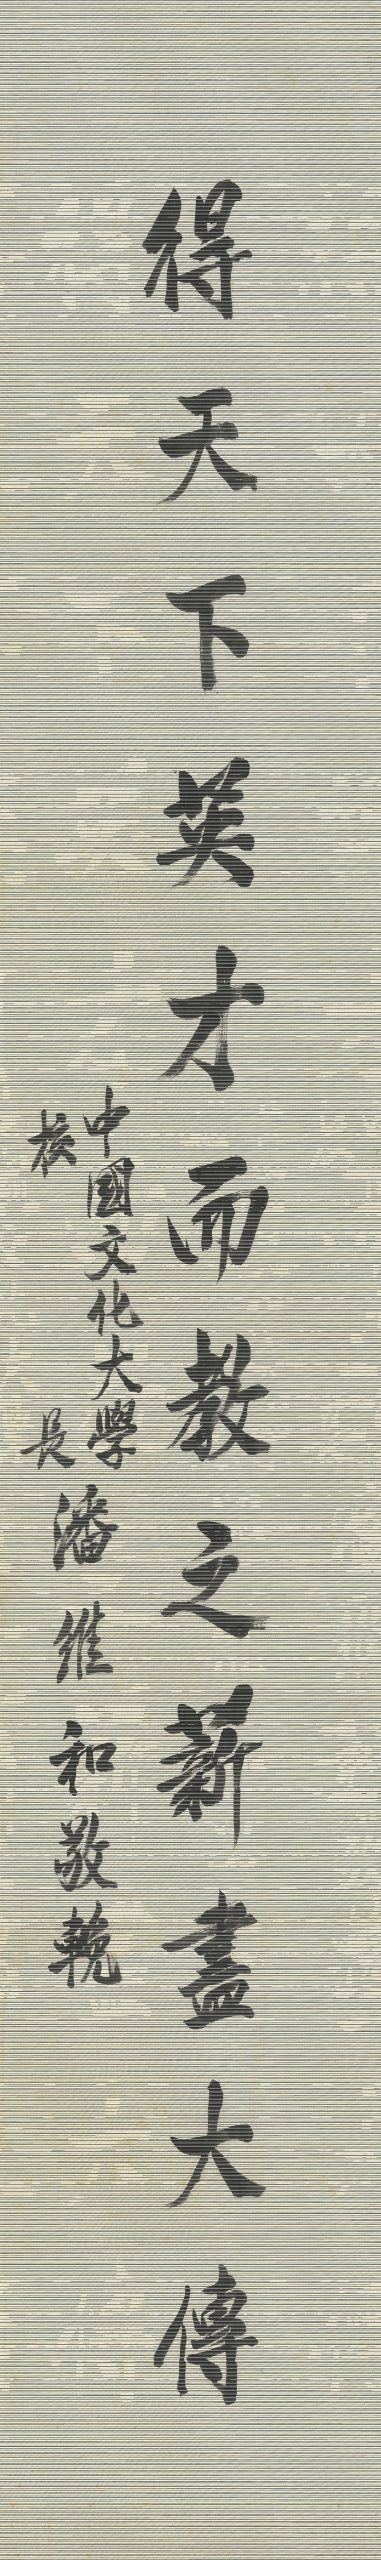 得天下英才而教之薪盡大傳
中國文化大學
校長
潘維和敬輓